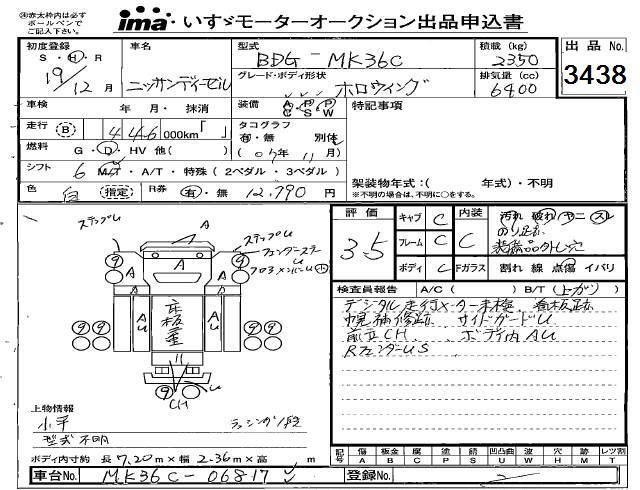 ㊟赤太枠内は必ず
ボールペンで
ご記入下さい。
ima・いすゞモーターオークション出品申込書
初度登録
S・H・R
19年12月
車名
ニッサンディーゼル
型式
BDG-MK36C
積載 (kg)
2350
出品 No.
3438
グレード・ボディ形状
ホロウイング
排気量 (cc)
6400
車検
年 月・ 抹消
装備 A P P
C S W
特記事項
走行 B 446 000km「 」
タコグラフ
有・無 別体
(07年11月)
燃料 G・D・HV 他( )
シフト 6 M/T・A/T・特殊 (2ペダル・3ペダル)
架装物年式:( 年式)・不明
※不明の場合は、不明に○をする。
色 白 (指定) R券 有・無 12,790 円
評価
3.5
キャブ C
フレーム C
ボディ C
内装
C
汚れ 破れ ヤニ スレ
のり跡
装備品外し穴
Fガラス 割れ 線 点傷 イバリ
検査員報告 A/C ( ) B/T (上がり)
デジタル走行メーター未検 看板跡
幌補修跡 サイドガードU
前立CH ボディ内AU
RフェンダーUS
ステップU
ステップU
フェンダーステーU
フロアメンバーU 小
A
A
A
A
AU
AU
A
床板差
9
9
9
9
9
H
CH
上物情報
小平
型式不明
ラッシング1段
ボディ内寸約 長 7.20m × 幅 2.36m × 高 m
No. 傷 A 板金 B 腐 C 塗 P 錆 S 凹凸曲 U 波 W 穴 H 補 M レツ割 T
車台No. MK36C-06817
登録No.